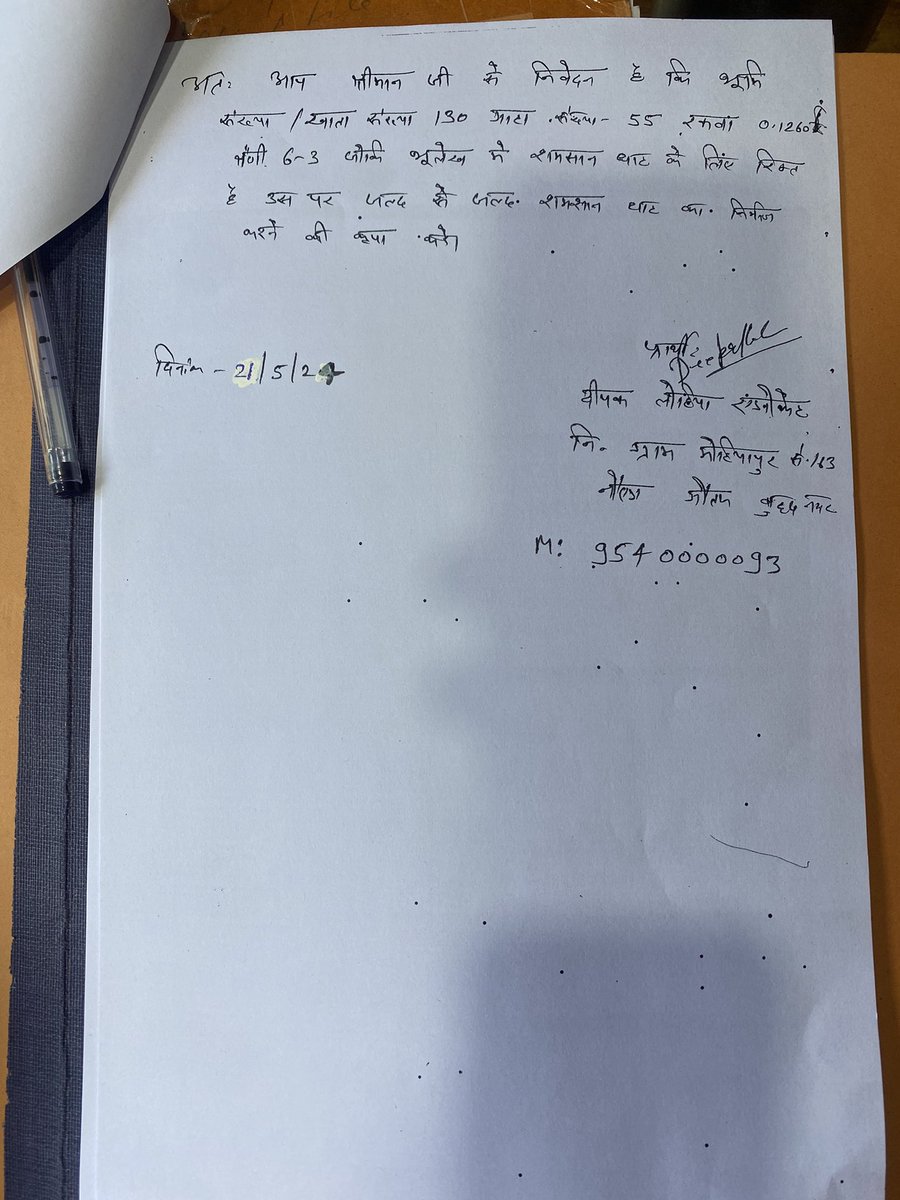 अतः आप श्रीमान जी से निवेदन है कि भूमि
संख्या / खाता संख्या 130 गाटा संख्या - 55 रकवा 0.1260
श्रेणी 6-3 जोकि भूलेख मे शमसान घाट के लिए रिक्त
है उस पर जल्द से जल्द शमशान घाट का निर्माण
करने की कृपा करे।
प्रार्थी:
दिनांक - 21/5/2
दीपक लोहिया एडवोकेट
नि. ग्राम मोहियापुर से. 163
नौएडा गौतम बुद्ध नगर
M: 9540000093